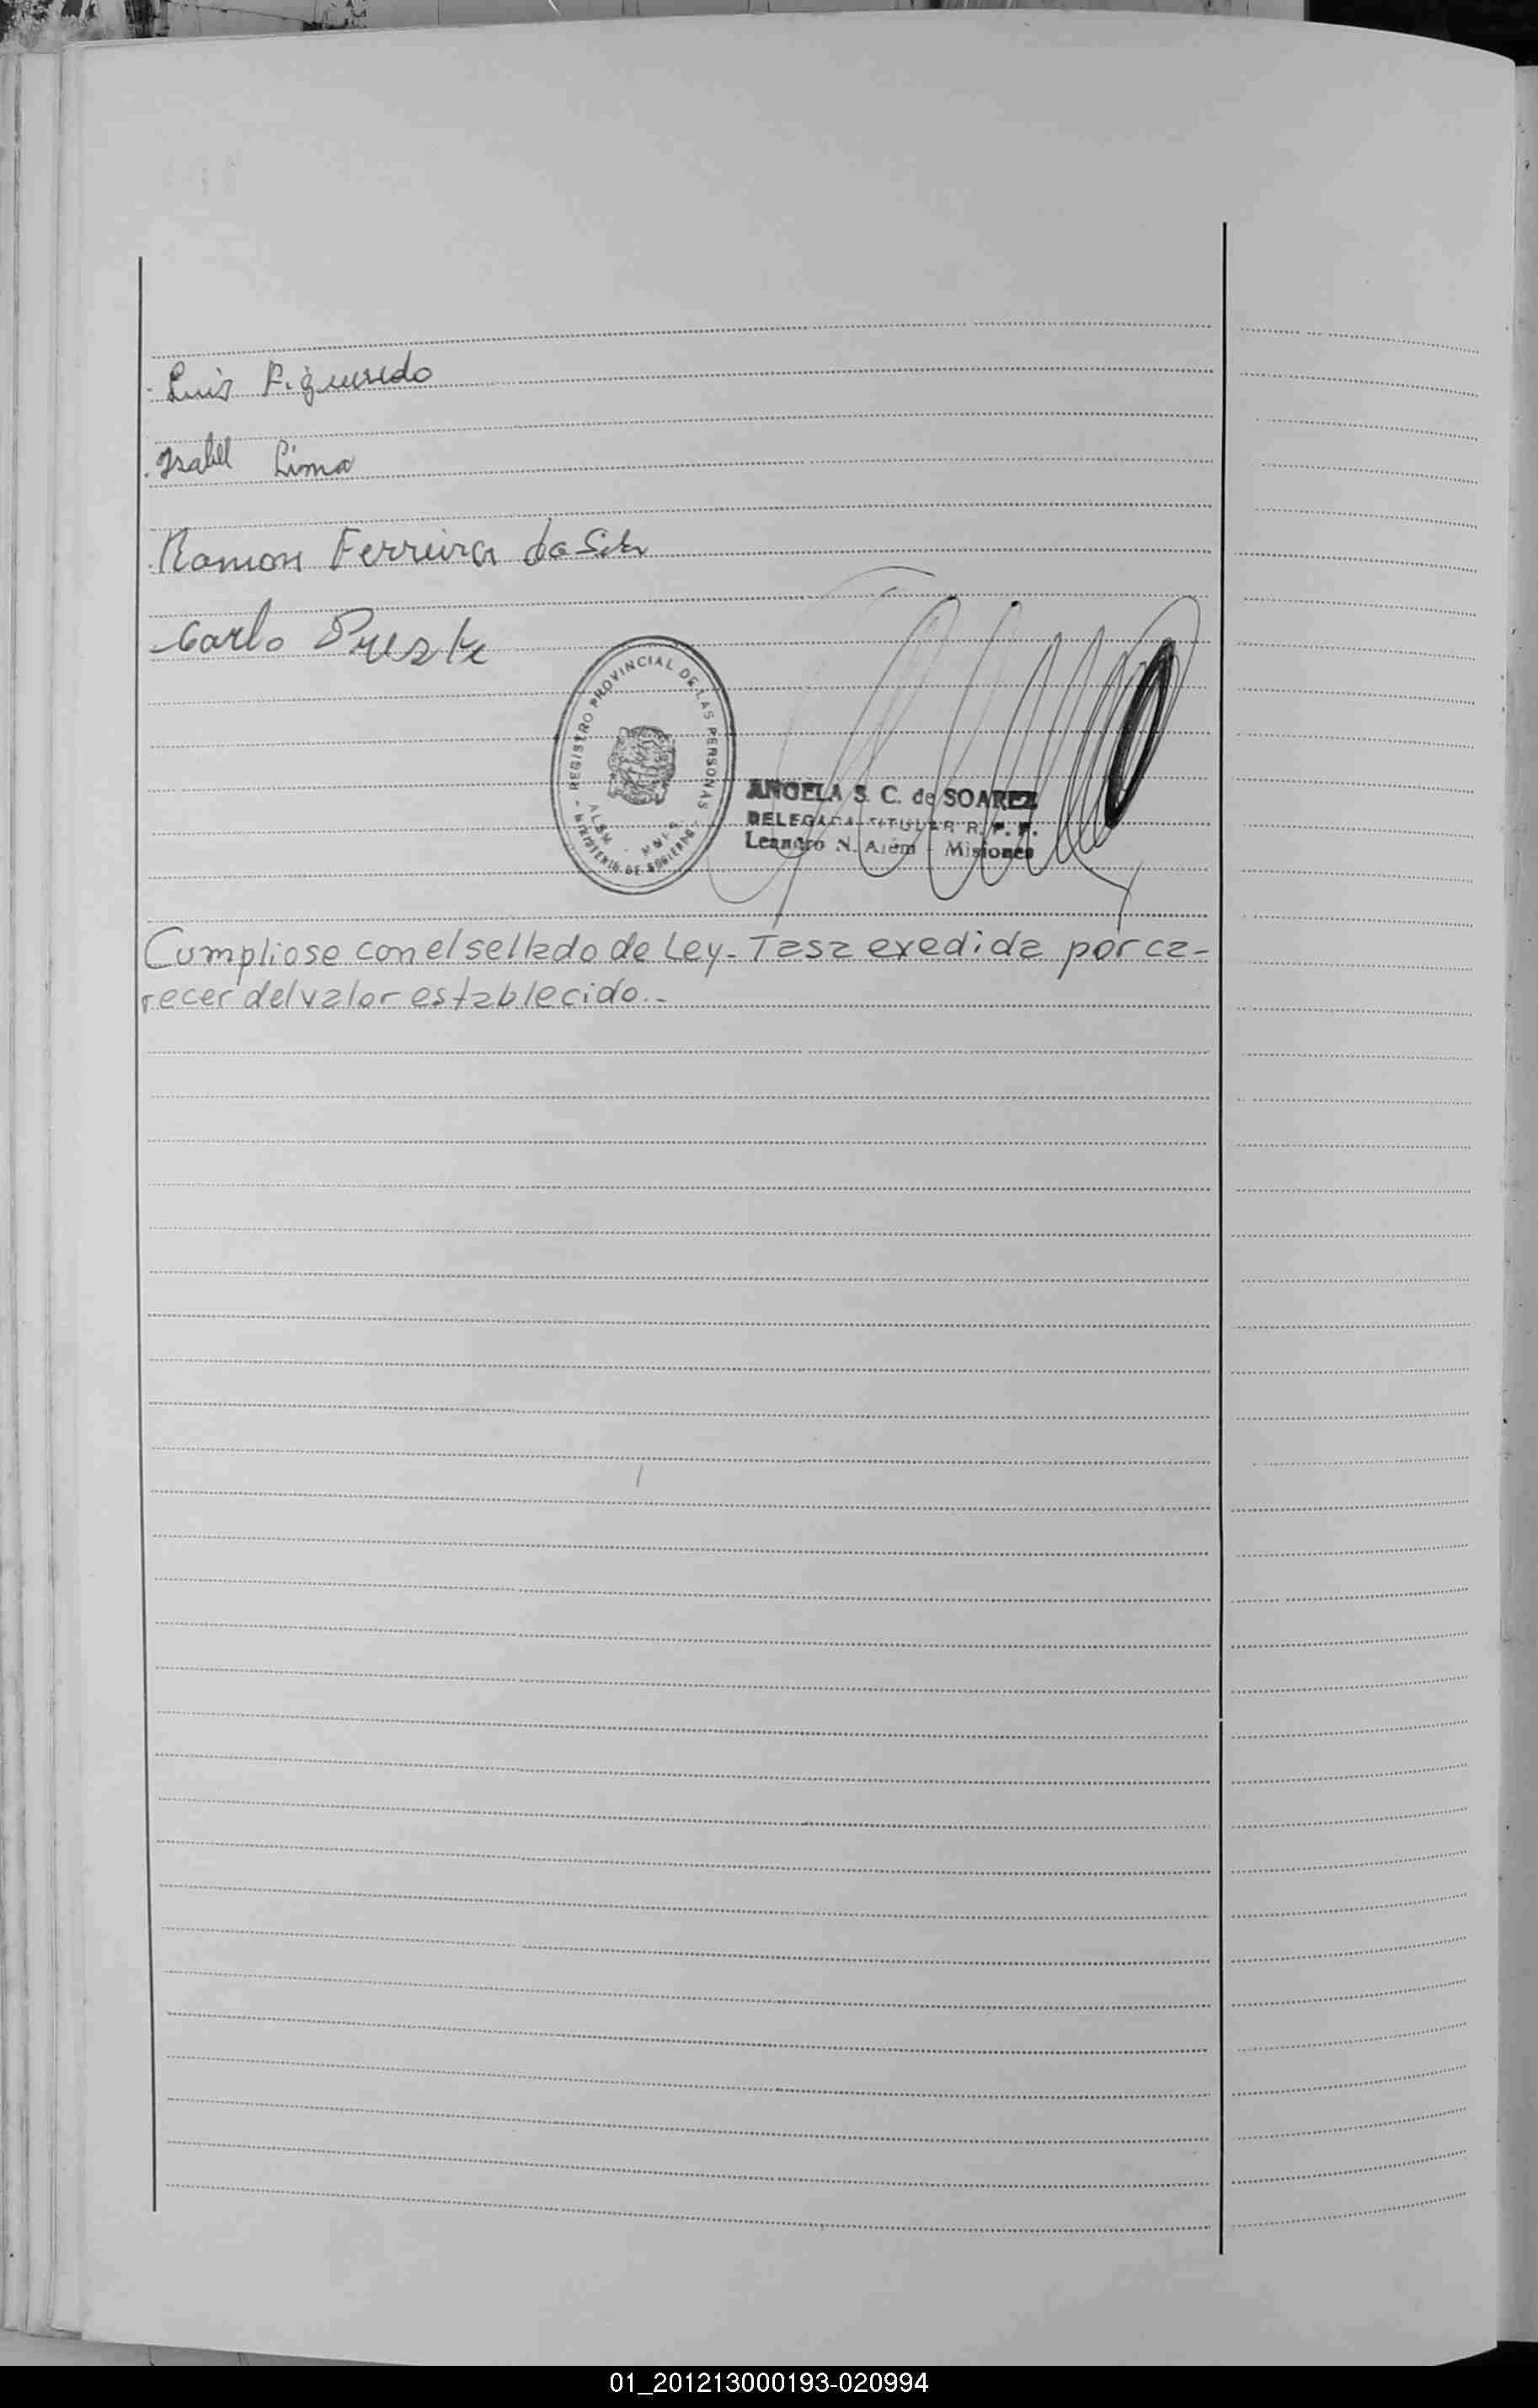 Luis Figueredo
Isabel Lima
Ramon Ferreira da
Carlo
- REGISTRO PROVINCIAL DE LAS PERSONAS -
ALEM - MNES.
MINISTERIO DE GOBIERNO
ANGELA S. C. de SOAREZ
DELEGADA TITULAR R. P. P.
Leandro N. Alem - Misiones
Cumpliose con el sellado de Ley - Tasa exedida por ca-
recer del valor establecido.-
01_201213000193-020994